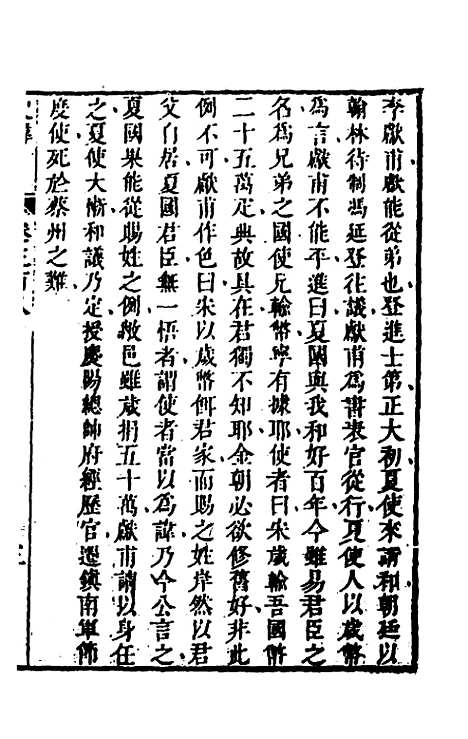 李獻甫獻能從弟也登進士第正大初夏使來請和朝廷以
翰林待制馮延登往議獻甫爲書表官從行夏使人以歲幣
爲言獻甫不能平進曰夏國與我和好百年今雖易君臣之
名爲兄弟之國使兄輸幣寧有據耶使者曰宋歲輸吾國幣
二十五萬疋典故具在君獨不知耶金朝必欲修舊好非此
例不可獻甫作色曰宋以歲幣餌君家而賜之姓岸然以君
父自居夏國君臣無一悟者謂使者當以爲諱乃今公言之
夏國果能從賜姓之例敝邑雖歲捐五十萬獻甫請以身任
之夏使大慚和議乃定授慶陽總帥府經歷官遷鎮南軍節
度使死於蔡州之難